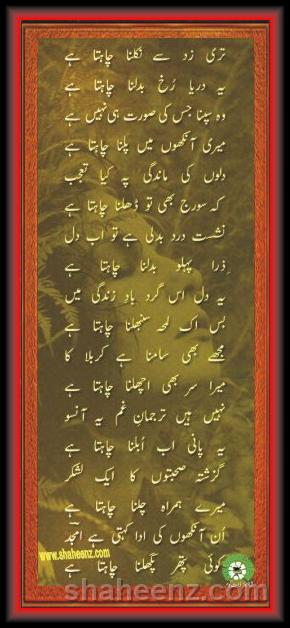 تری زد سے نکلنا چاہتا ہے
یہ دریا رُخ بدلنا چاہتا ہے
وہ سپنا جس کی صورت ہی نہیں ہے
میری آنکھوں میں پلنا چاہتا ہے
دلوں کی ماندگی پہ کیا تعجب
کہ سورج بھی تو ڈھلنا چاہتا ہے
نشست درد بدلی ہے تو اب دل
ذرا پہلو بدلنا چاہتا ہے
یہ دل اس گرد بادِ زندگی میں
بس اک لمحہ سنبھلنا چاہتا ہے
مجھے بھی سامنا ہے کربلا کا
میرا سر بھی اچھلنا چاہتا ہے
نہیں ہیں ترجمانِ غم یہ آنسو
یہ پانی اب اُبلنا چاہتا ہے
گزشتہ صحبتوں کا ایک لشکر
میرے ہمراہ چلنا چاہتا ہے
اُن آنکھوں کی ادا کہتی ہے امجد
کوئی پتھر پگھلنا چاہتا ہے
www.shaheenz.com
shaheenz.com